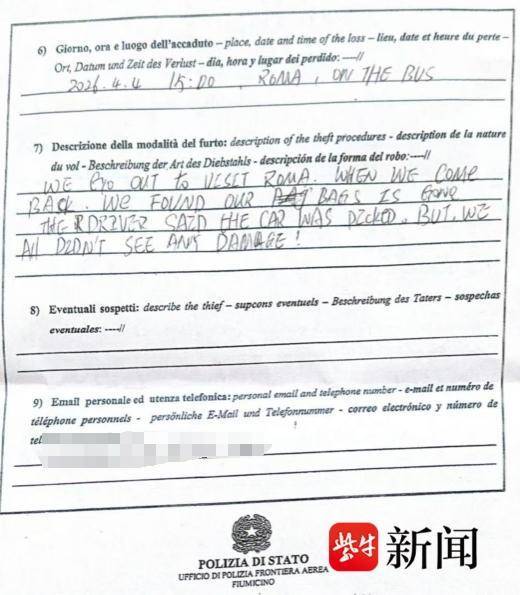 6) Giorno, ora e luogo dell'accaduto – place, date and time of the loss – lieu, date et heure du perte –
Ort, Datum und Zeit des Verlust – dia, hora y lugar del perdido: ----//
2026.4.4 15:00, ROMA, ON THE BUS
7) Descrizione della modalità del furto: description of the theft procedures - description de la nature
du vol - Beschreibung der Art des Diebstahls – descripción de la forma del robo:----//
WE OUT to VISIT ROMA. WHEN WE COME
BACK. WE FOUND OUR BAGS IS GONE
THE DRIVER SAID THE CAR WAS PICKED. BUT, WE
All DIDN'T SEE ANY DAMAGE!
8) Eventuali sospetti: describe the thief – supcons eventuels – Beschreibung des Taters – sospechas
eventuales: ----//
9) Email personale ed utenza telefonica: personal email and telephone number - e-mail et numéro de
téléphone personnels - persönliche E-Mail und Telefonnummer - correo electrónico y número de
tel
POLIZIA DI STATO
UFFICIO DI POLIZIA FRONTIERA AEREA
FIUMICINO
紫牛 新闻